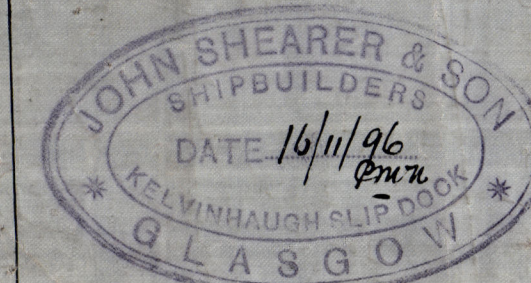 JOHN SHEARER & SON
SHIPBUILDERS
DATE 16/11/96
KELVINHAUGH SLIP DOCK
* GLASGOW *